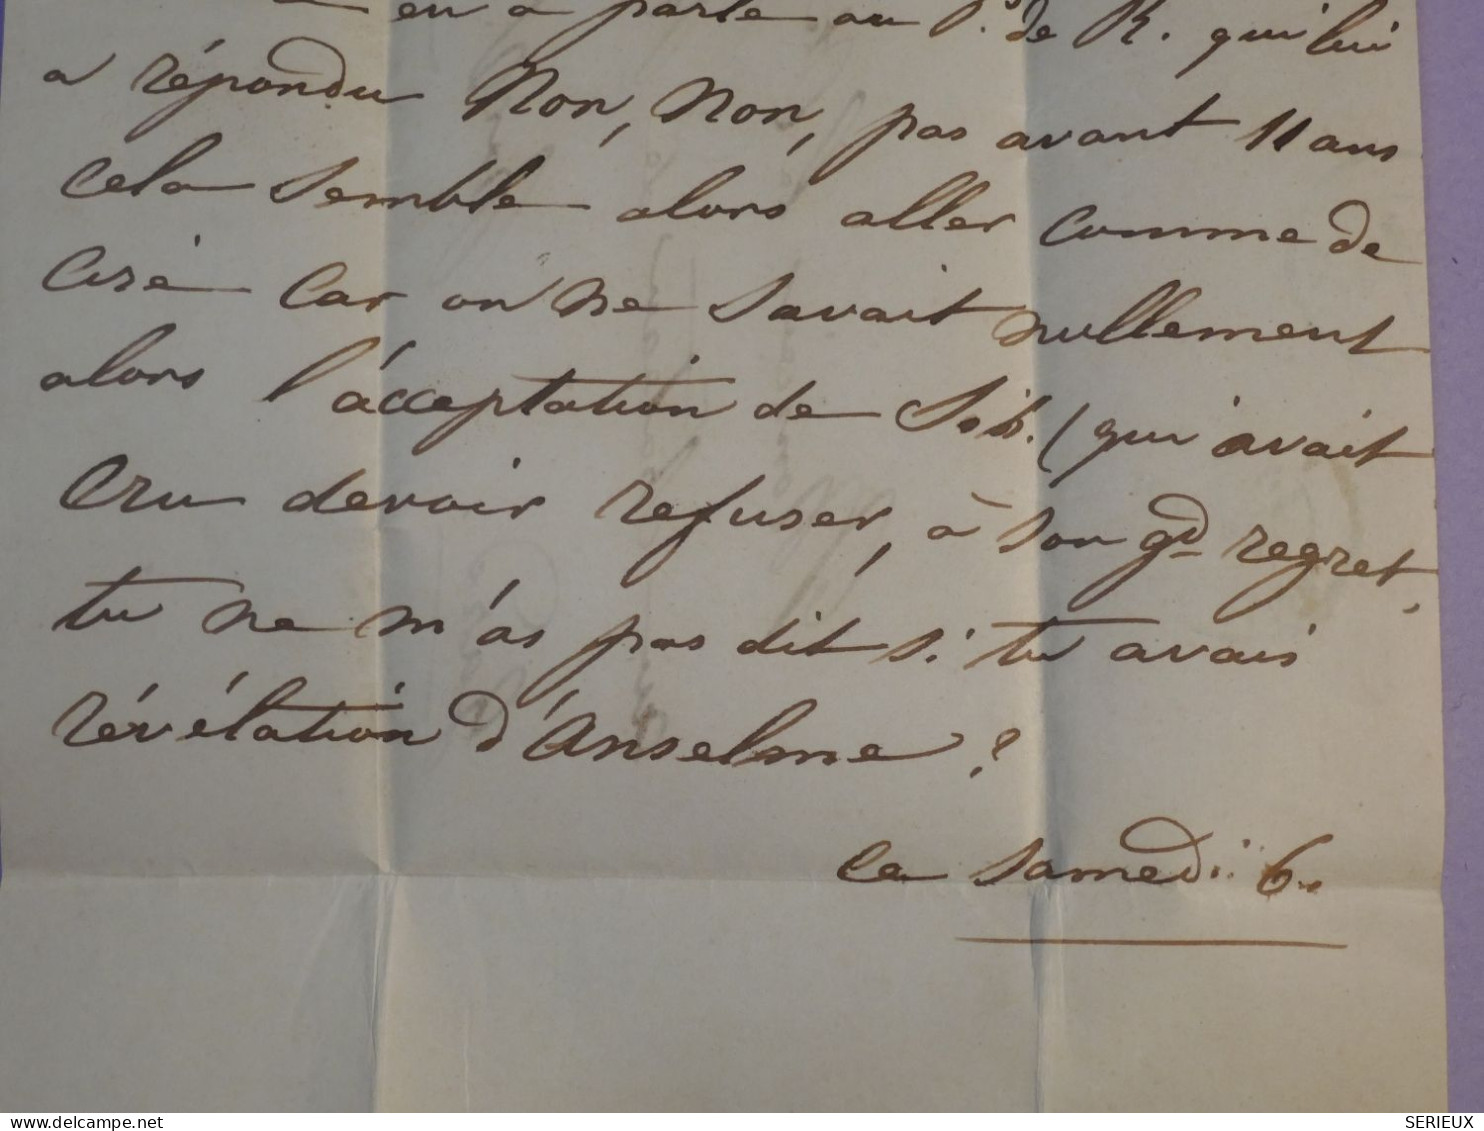 en a parlé au P.ᵉ de R. qui lui
a répondu Non, Non, pas avant 11 ans
cela semble alors aller comme de
ciré car on ne savait nullement
alors l'acceptation de (qui avait
cru devoir refuser, à son gd regret,
tu ne m'as pas dit si tu avais
révélation d'Anselme ?
ce samedi 6
delcampe.net
SERIEUX